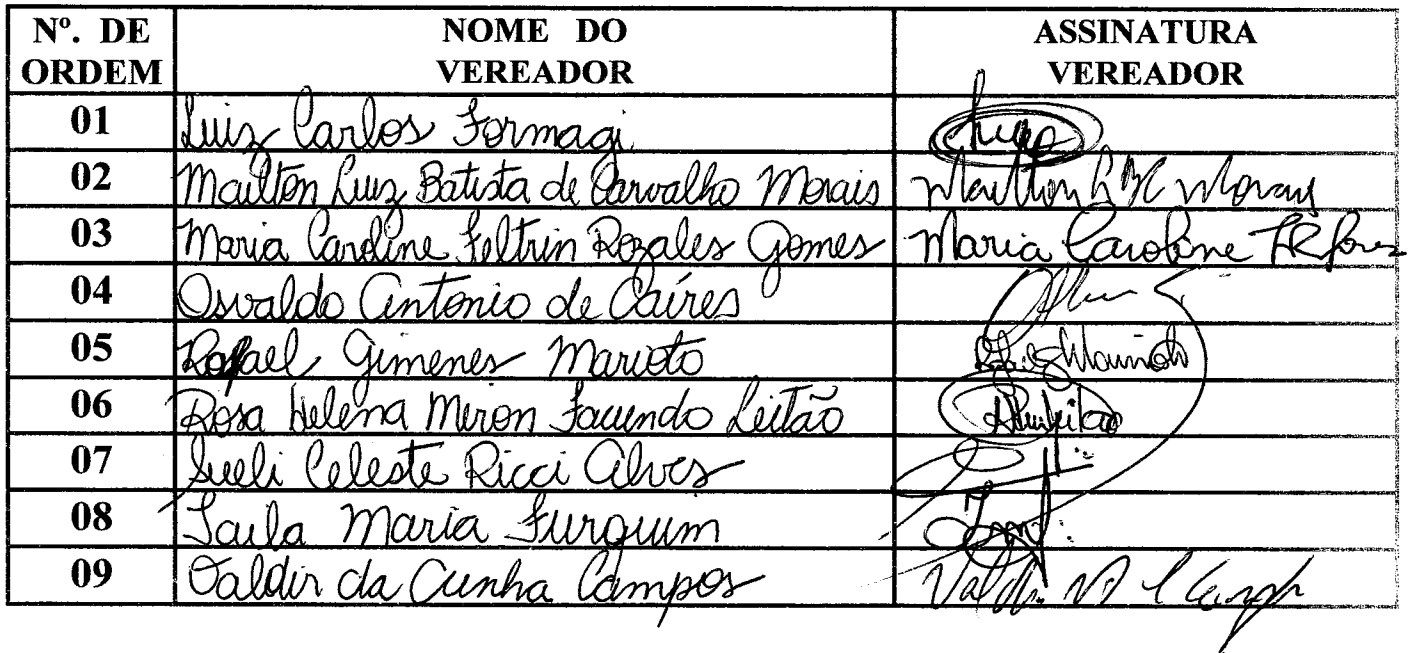 Nº. DE ORDEM NOME DO VEREADOR ASSINATURA VEREADOR
01 Luiz Carlos Formagi
02 Mailton Luiz Batista de Carvalho Morais Mailton L B C Morais
03 Maria Caroline Feltrin Rozales Gomes Maria Caroline
04 Osvaldo Antonio de Caíres
05 Rafael Gimenes Marioto
06 Rosa Helena Miron Facundo Leitão
07 Sueli Celeste Ricci Alves
08 Taila Maria Furquim
09 Valdir da Cunha Campos